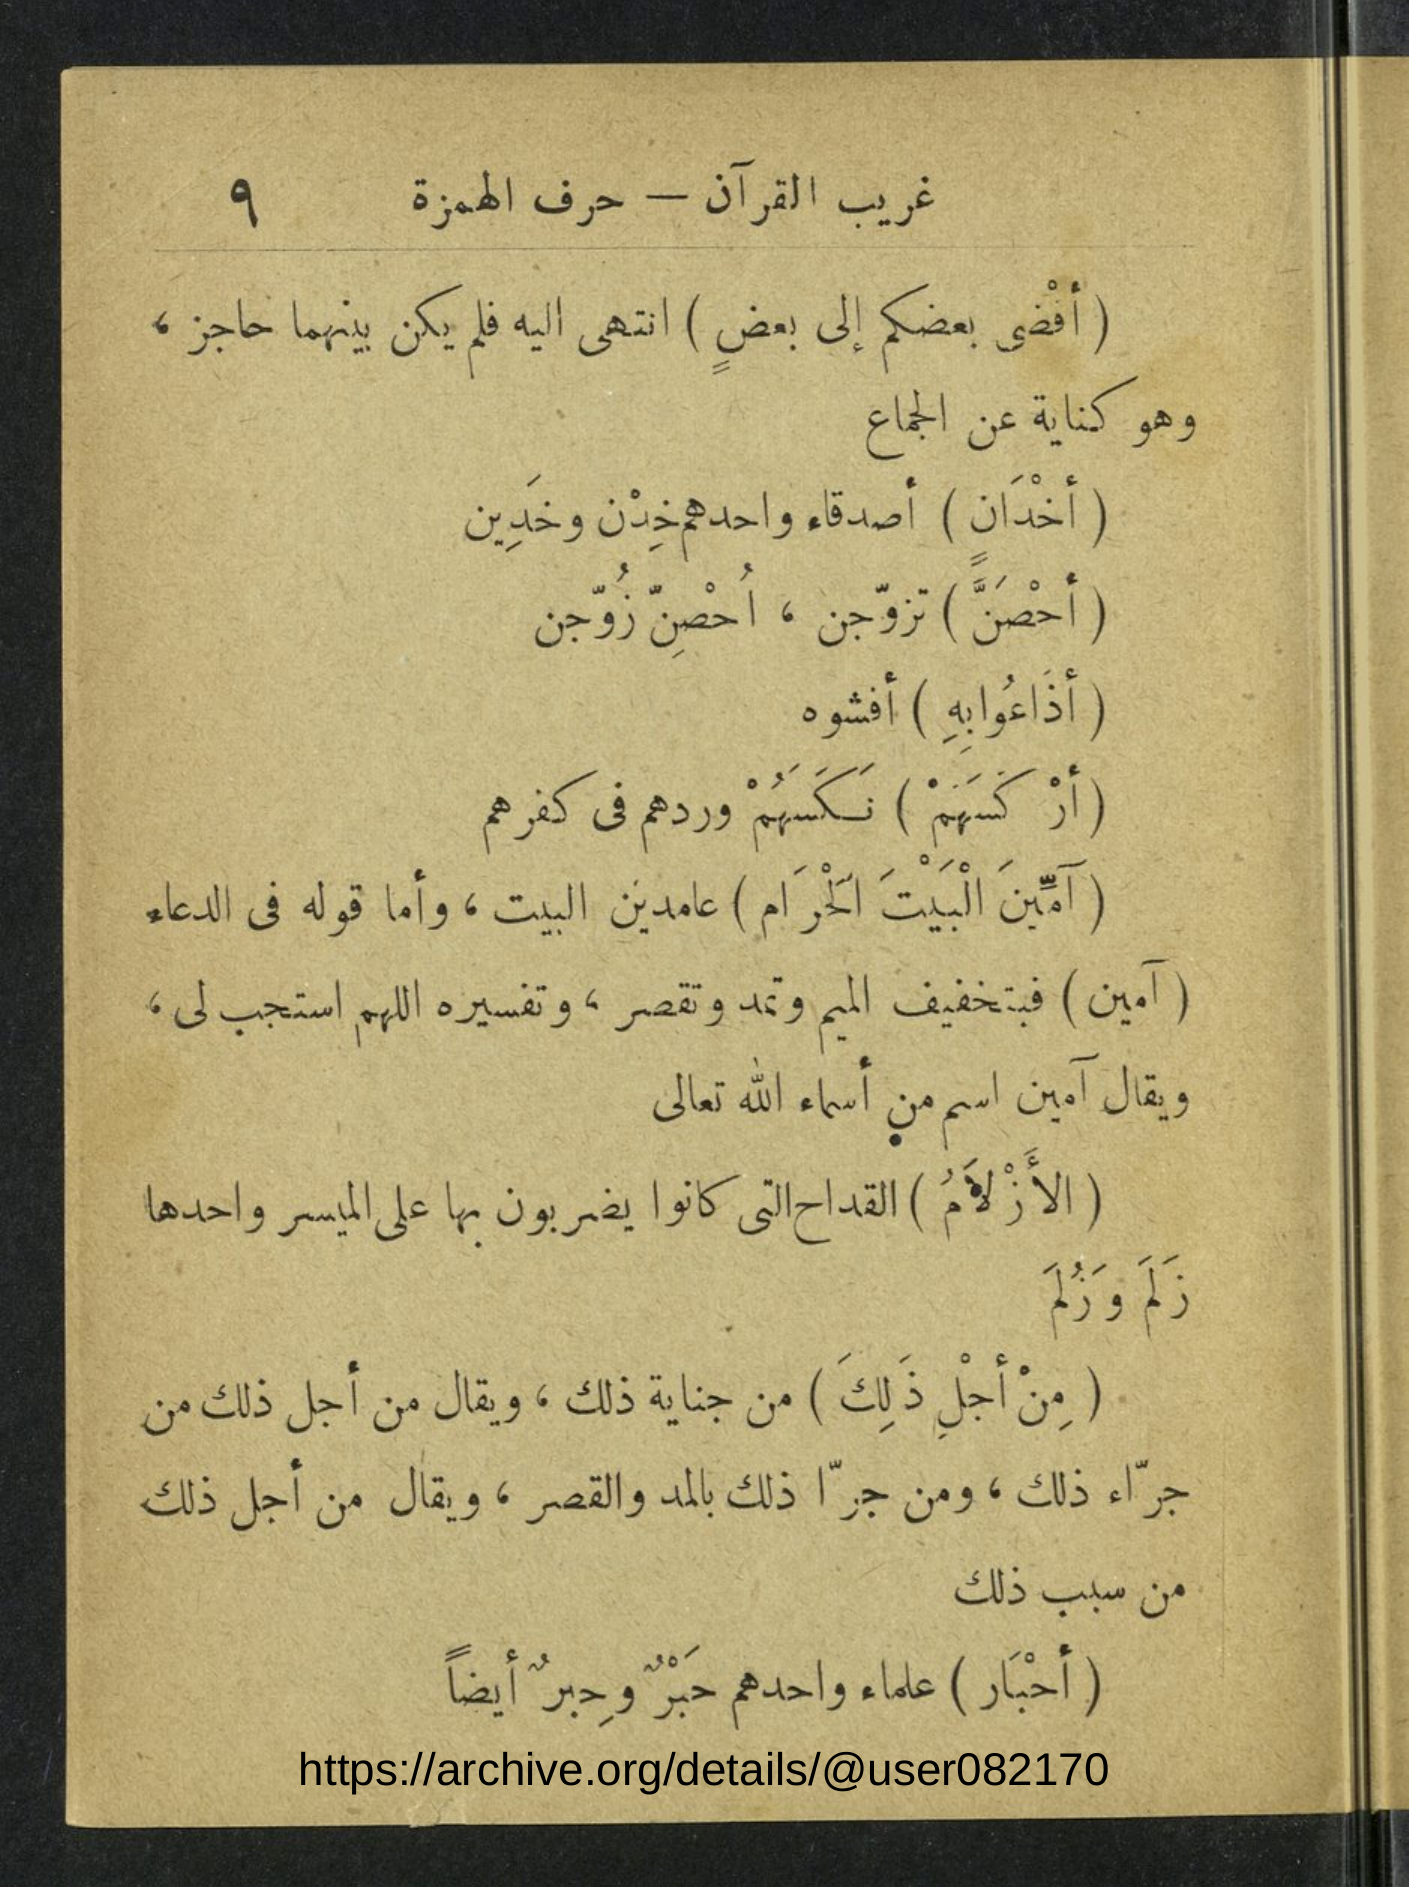 غريب القرآن — حرف الهمزة ٩
( أفْضى بعضكم إلى بعضٍ ) انتهى اليه فلم يكن بينهما حاجز ،
وهو كناية عن الجماع
( أخْدَانٍ ) أصدقاء واحدهم خِدْن وخَدِين
( أحْصَنَّ ) تزوّجن ، اُحْصِنّ زُوّجن
( أذَاعُوا بِهِ ) أفشوه
( أرْ كَسَهَمْ ) نَكَسَهُمْ وردهم فى كفرهم
( آمِّينَ الْبَيْتَ الَحْرَام ) عامدين البيت ، وأما قوله فى الدعاء
( آمين ) فبتخفيف الميم وتمد وتقصر ، وتفسيره اللهم استجب لى ،
ويقال آمين اسم من أسماء الله تعالى
( الأَزْلاَمُ ) القداح التى كانوا يضربون بها على الميسر واحدها
زَلَمَ وَزُلَمَ
( مِنْ أجْلِ ذَلِكَ ) من جناية ذلك ، ويقال من أجل ذلك من
جرّاء ذلك ، ومن جرّا ذلك بالمد والقصر ، ويقال من أجل ذلك
من سبب ذلك
( أحْبَار ) علماء واحدهم حَبْرٌ وحِبرٌ أيضاً
https://archive.org/details/@user082170